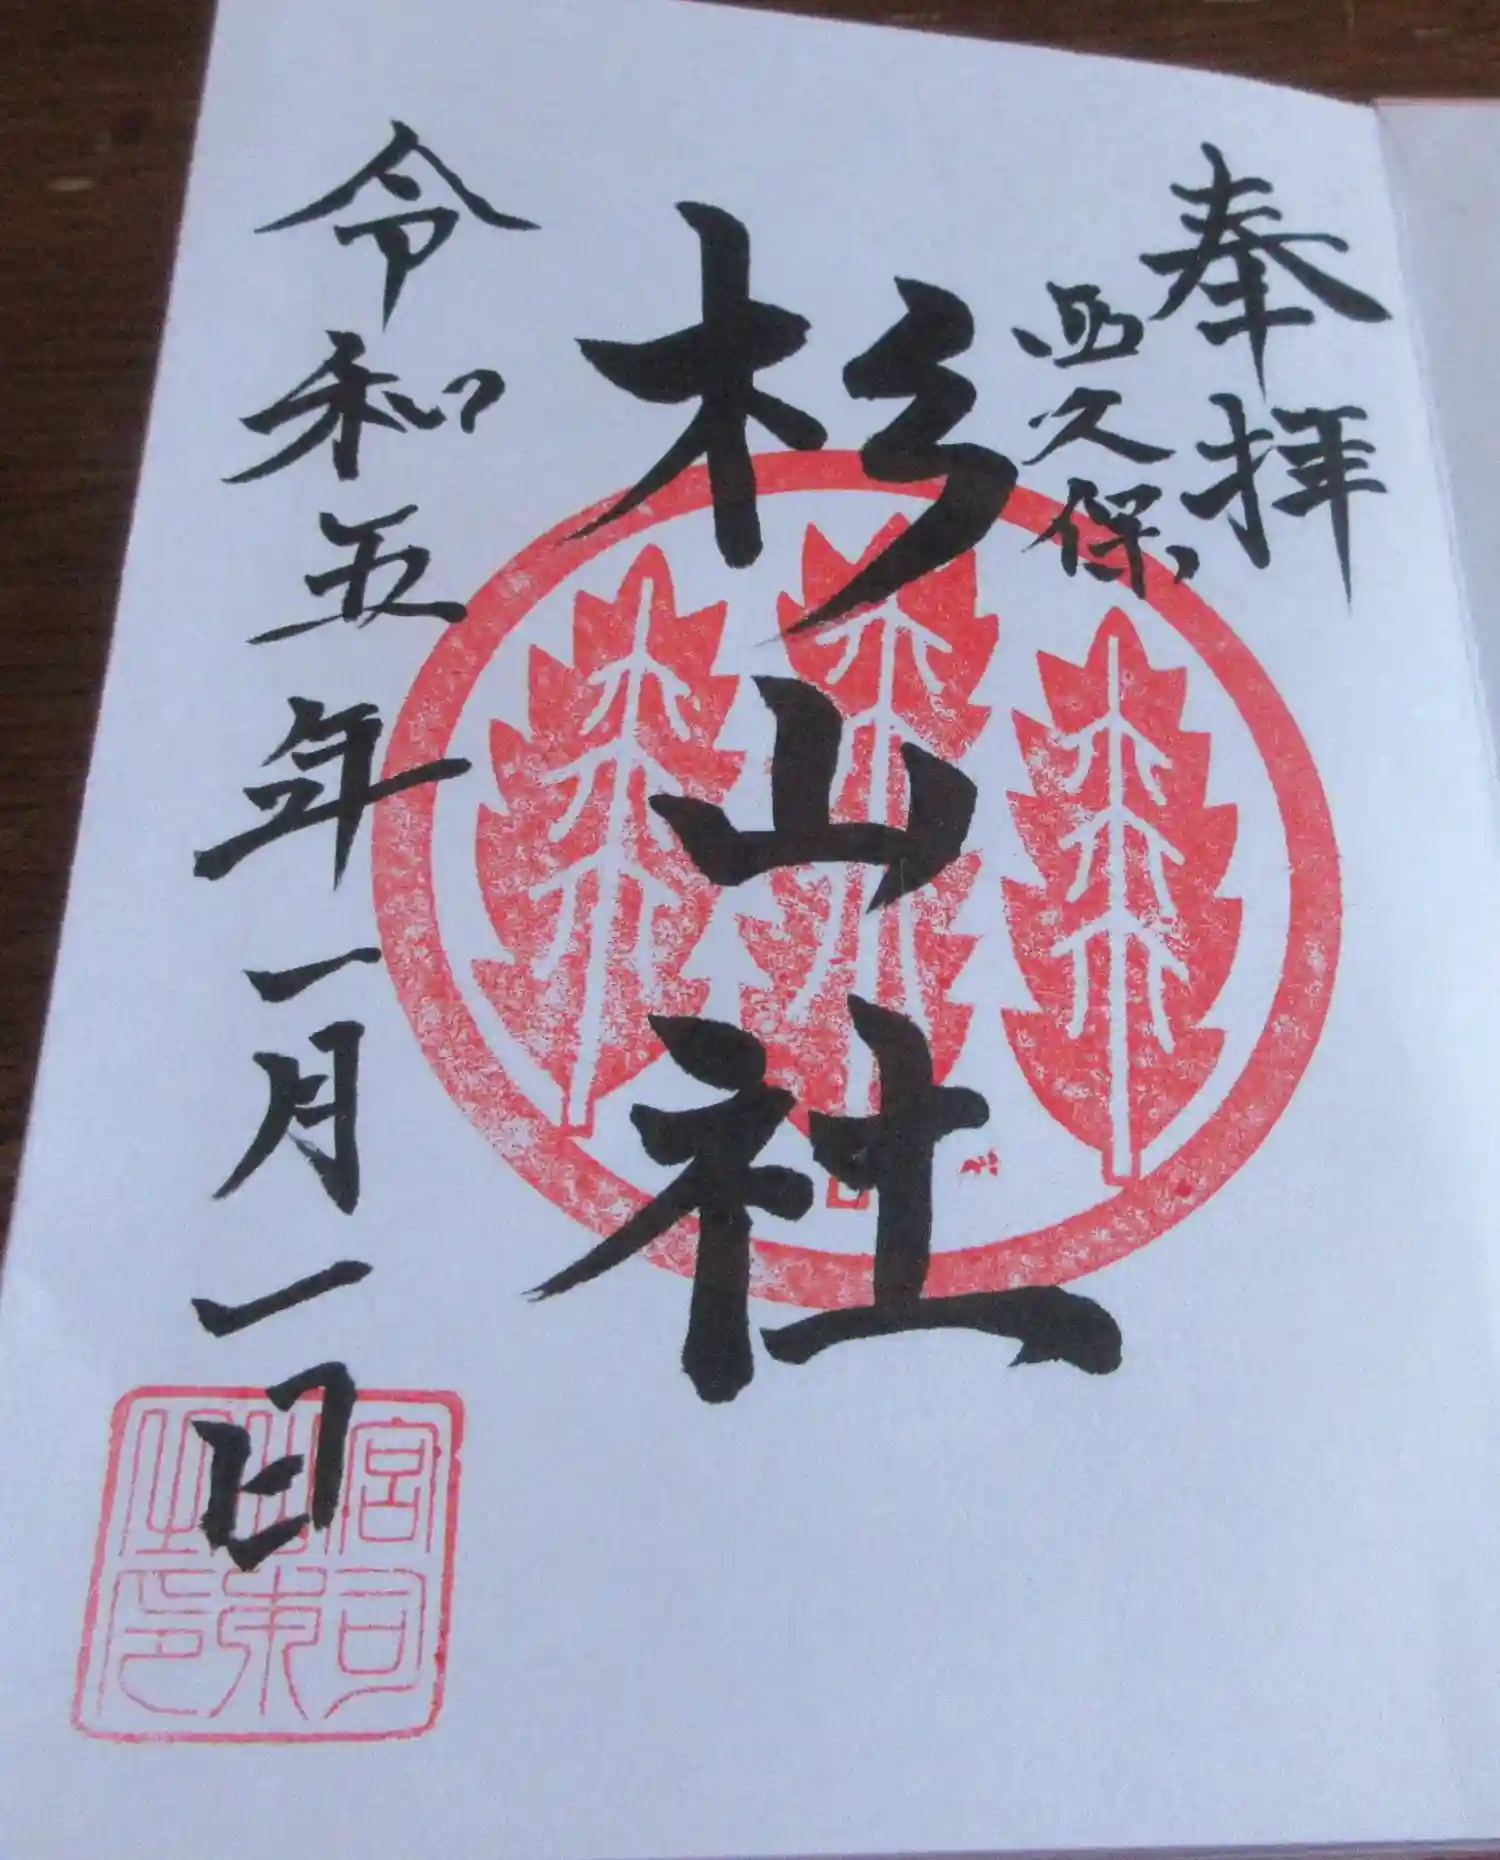 奉拝
西久保
杉山社
令和五年一月一日
宮司
之印